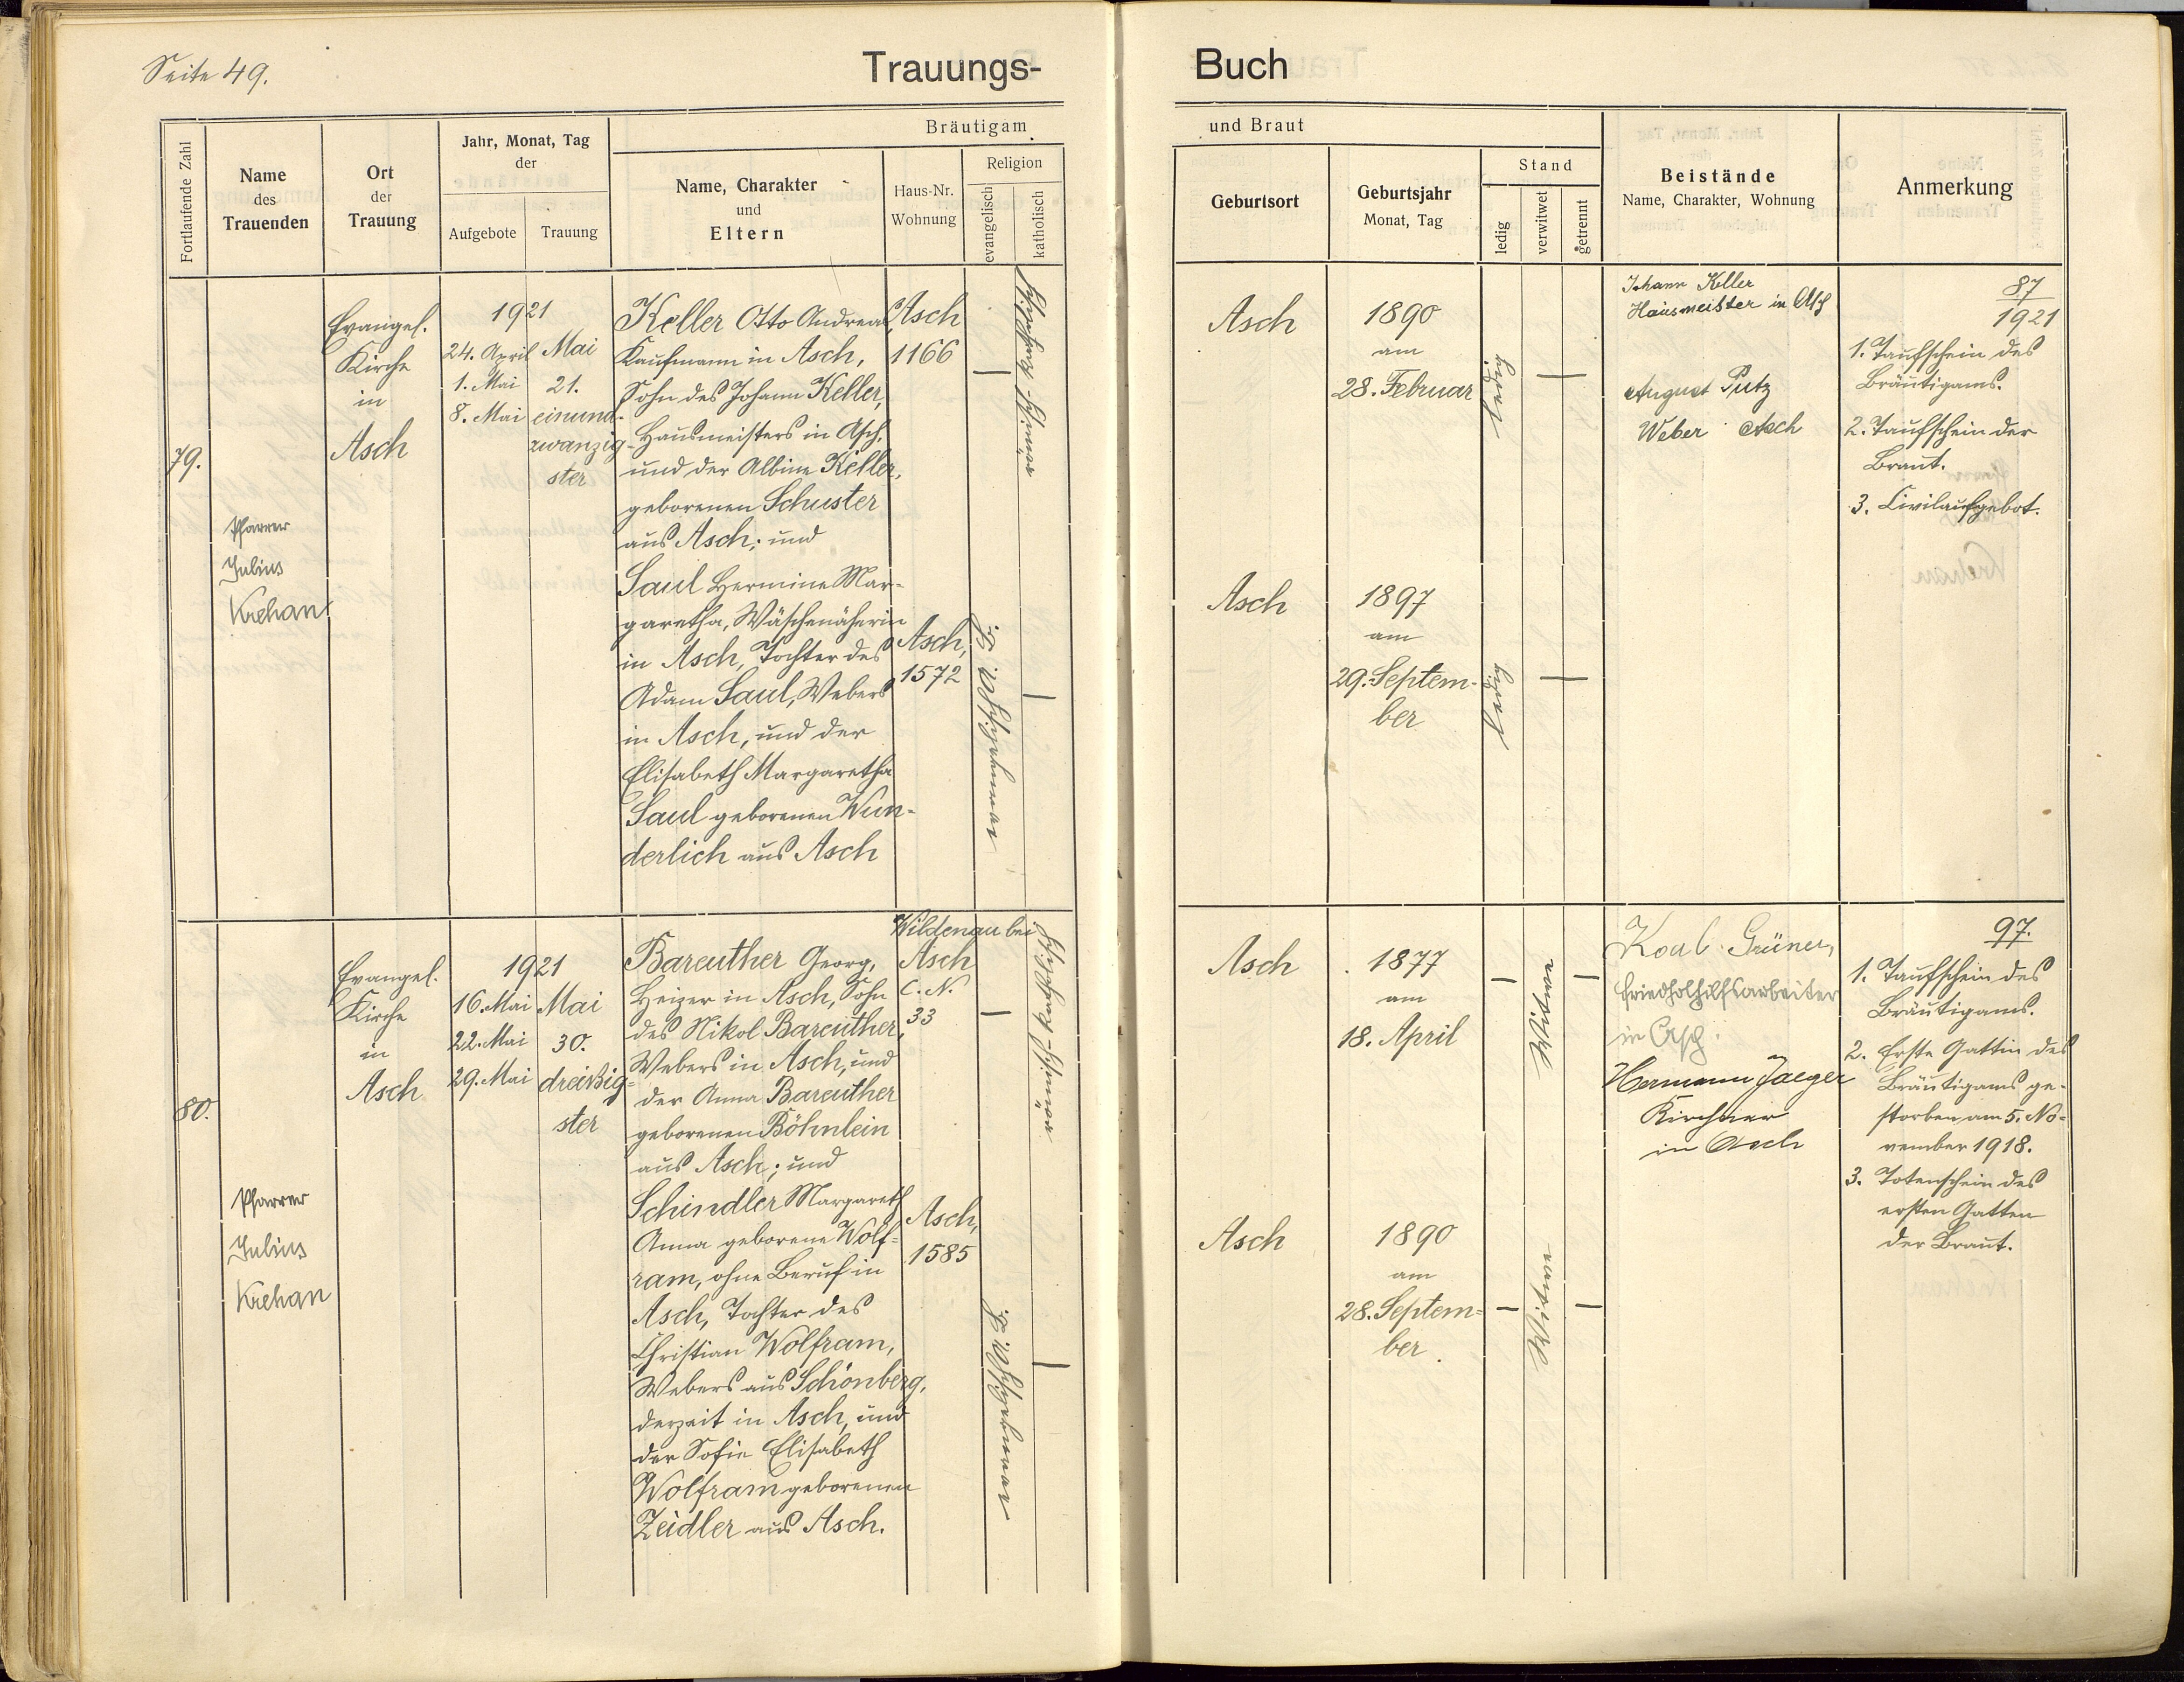 Seite 49.
Trauungs-
Buch
Fortlaufende Zahl
Name
des
Trauenden
Ort
der
Trauung
Jahr, Monat, Tag
der
Aufgebote
Trauung
Bräutigam
Name, Charakter
und
Eltern
Haus-Nr.
Wohnung
Religion
evangelisch
katholisch
und Braut
Geburtsort
Geburtsjahr
Monat, Tag
Stand
ledig
verwitwet
getrennt
Beistände
Name, Charakter, Wohnung
Anmerkung
79.
Pfarrer
Julius
Krehan
Evangel.
Kirche
in
Asch
1921
24. April
1. Mai
8. Mai
Mai
21.
einund-
zwanzig-
ster
Keller Otto Andreas,
Kaufmann in Asch,
Sohn des Johann Keller,
Hausmeisters in Asch,
und der Albine Keller,
geborenen Schuster
aus Asch; und
Saul Hermine Mar-
garetha, Wäschenäherin
in Asch, Tochter des
Adam Saul, Webers
in Asch, und der
Elisabeth Margaretha
Saul geborenen Wun-
derlich aus Asch
Asch
1166
Asch,
1572
—
römisch-katholisch
evangelisch A. B.
—
Asch
1890
am
28. Februar
ledig
—
Asch
1897
am
29. Septem-
ber
ledig
—
Johann Keller
Hausmeister in Asch
August Putz
Weber Asch
87
1921
1. Taufschein des
Bräutigams.
2. Taufschein der
Braut.
3. Civilaufgebot.
80.
Pfarrer
Julius
Krehan
Evangel.
Kirche
in
Asch
1921
16. Mai
22. Mai
29. Mai
Mai
30.
dreißig-
ster
Bareuther Georg,
Heizer in Asch, Sohn
des Nikol Bareuther,
Webers in Asch, und
der Anna Bareuther
geborenen Böhnlein
aus Asch; und
Schindler Margareth
Anna geborene Wolf-
ram, ohne Beruf in
Asch, Tochter des
Christian Wolfram,
Webers aus Schönberg,
derzeit in Asch, und
der Sofie Elisabeth
Wolfram geborenen
Zeidler aus Asch.
Wildenau bei
Asch
C. N.
33
Asch,
1585
—
römisch-katholisch
evangelisch A. B.
—
Asch
1877
am
18. April
—
Witwer
—
Asch
1890
am
28. Septem-
ber
—
Witwe
—
Grüner,
Friedhofhilfsarbeiter
in Asch.
Hermann Jaeger
Kirchner
in Asch
97.
1. Taufschein des
Bräutigams.
2. Erste Gattin des
Bräutigams ge-
storben am 5. No-
vember 1918.
3. Totenschein des
ersten Gatten
der Braut.